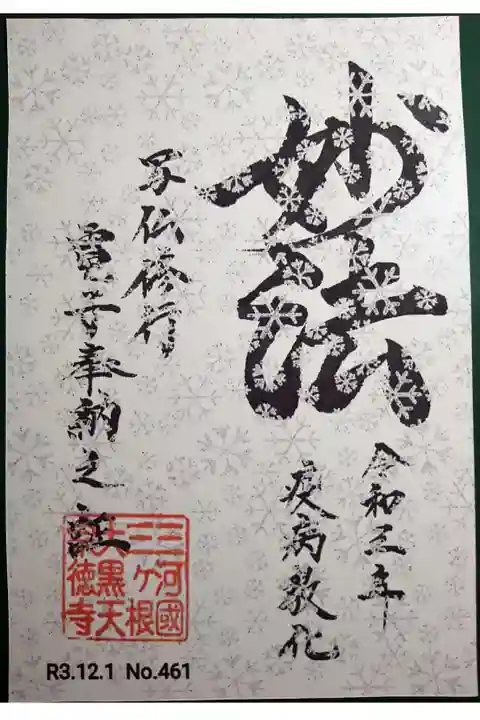 妙法
令和三年
病化
写仏修行
奉納之
三河國
三ヶ根
大黒天
徳寺
R3.12.1 No.461